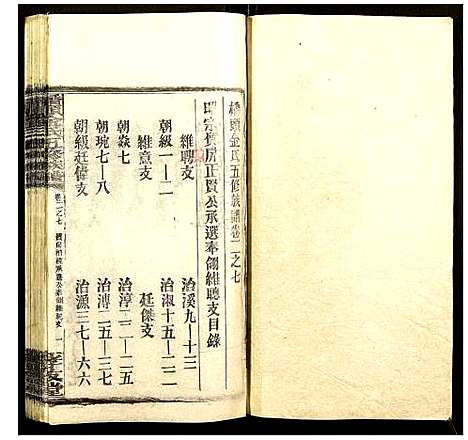 橋頭金氏五修族譜卷二之七
昭宗賓房正賢公承選奉翎維聰支目錄
維聰支
治溪九一十二
朝級一一二
治淑十五一二二
維意支
廷傑支
朝焱七
治淳二一二五
朝琬七一八
治溥二五一三七
朝級廷儒支
治源三七一六六
卷二之七